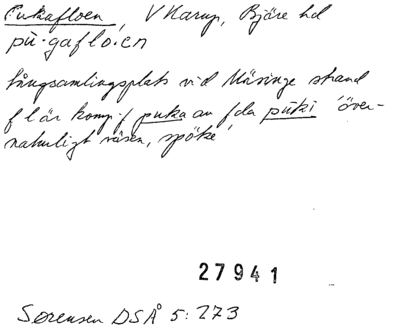 Pukafloen, V Karup, Bjäre hd
pù·gaflo.en
tångsamlingsplats vid Mäsinge strand
f l är komp. f puka av fda pūki 'över-
naturligt väsen, spöke'
27941
Sørensen DSÅ 5:273